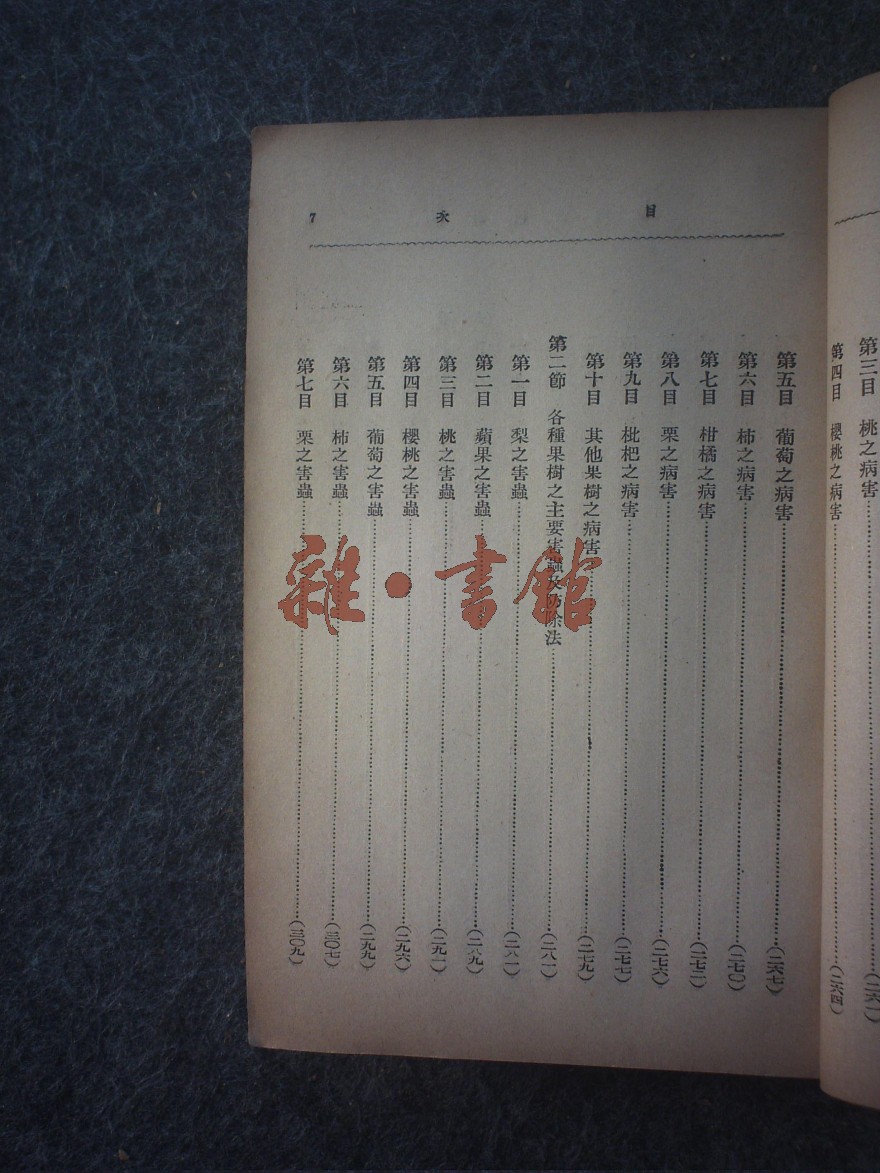 第三目　桃之病害……(二六一)
第四目　櫻桃之病害……(二六四)
目　次　7
第五目　葡萄之病害……(二六七)
第六目　柿之病害……(二七〇)
第七目　柑橘之病害……(二七二)
第八目　栗之病害……(二七六)
第九目　枇杷之病害……(二七七)
第十目　其他果樹之病害……(二七九)
第二節　各種果樹之主要害蟲及防除法……(二八一)
第一目　梨之害蟲……(二八一)
第二目　蘋果之害蟲……(二八九)
第三目　桃之害蟲……(二九一)
第四目　櫻桃之害蟲……(二九六)
第五目　葡萄之害蟲……(二九九)
第六目　柿之害蟲……(三〇七)
第七目　栗之害蟲……(三〇九)
雜·書館